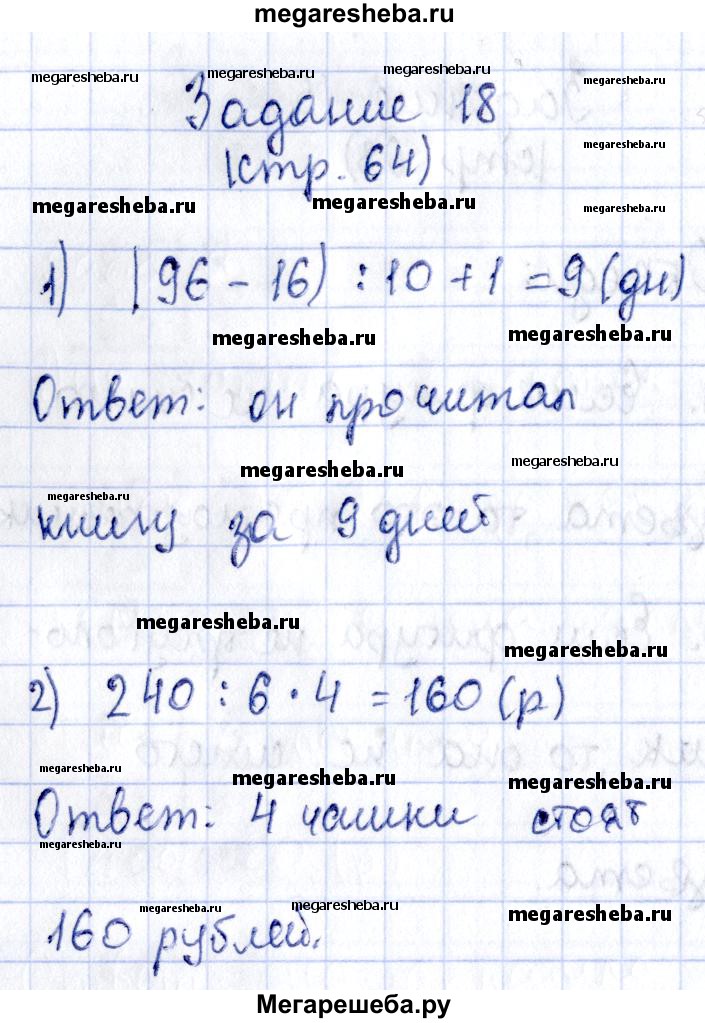 megaresheba.ru
megaresheba.ru megaresheba.ru megaresheba.ru megaresheba.ru
Задание 18
megaresheba.ru
(стр. 64)
megaresheba.ru megaresheba.ru megaresheba.ru
1) (96 - 16) : 10 + 1 = 9 (дн)
megaresheba.ru megaresheba.ru
Ответ: он прочитал
megaresheba.ru megaresheba.ru
megaresheba.ru
книгу за 9 дней
megaresheba.ru
megaresheba.ru
2) 240 : 6 · 4 = 160 (р)
megaresheba.ru megaresheba.ru megaresheba.ru
Ответ: 4 чашки стоят
megaresheba.ru
megaresheba.ru megaresheba.ru megaresheba.ru
160 рублей.
Мегарешеба.ру